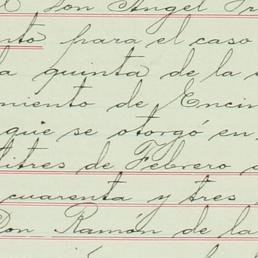 Don Angel
nto para el caso
a quinta de la
miento de Encin
que se otorgó en
litres de Febrero
cuarenta y tres
Don Ramón de la